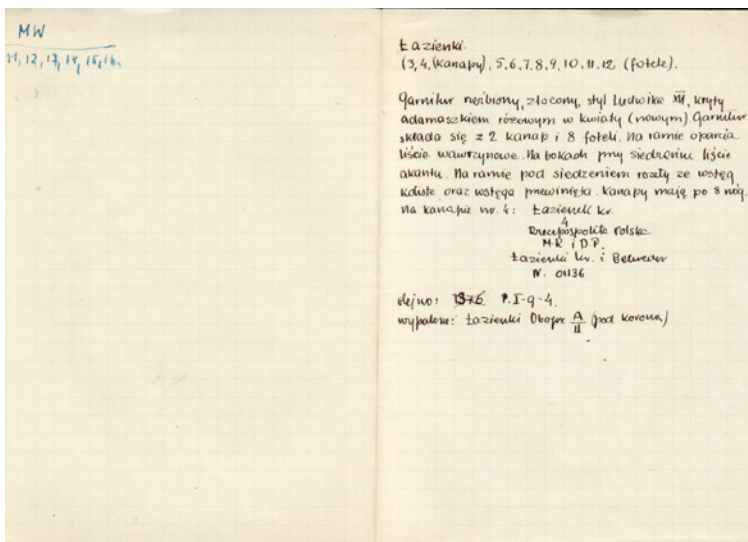 MW
11, 12, 13, 14, 15, 16.
Łazienki.
(3, 4, (kanapy), 5, 6, 7, 8, 9, 10, 11, 12 (fotele).
Garnitur rzeźbiony, złocony, styl Ludwika XVI, kryty
adamaszkiem różowym w kwiaty (nowym). Garnitur
składa się z 2 kanap i 8 foteli. Na ramie oparcia
liście wawrzynowe. Na bokach przy siedzeniu liście
akantu. Na ramie pod siedzeniem rozety ze wstęgą
koliste oraz wstęga przewinięta. Kanapy mają po 8 nóg.
Na kanapie nr. 4: Łazienek kr.
4
Rzeczpospolita Polska
M.R i D.P.
Łazienki kr. i Belweder
N. 01136
olejno: 1376 P. I-9-4.
wypalone: Łazienki A
II (pod koroną)